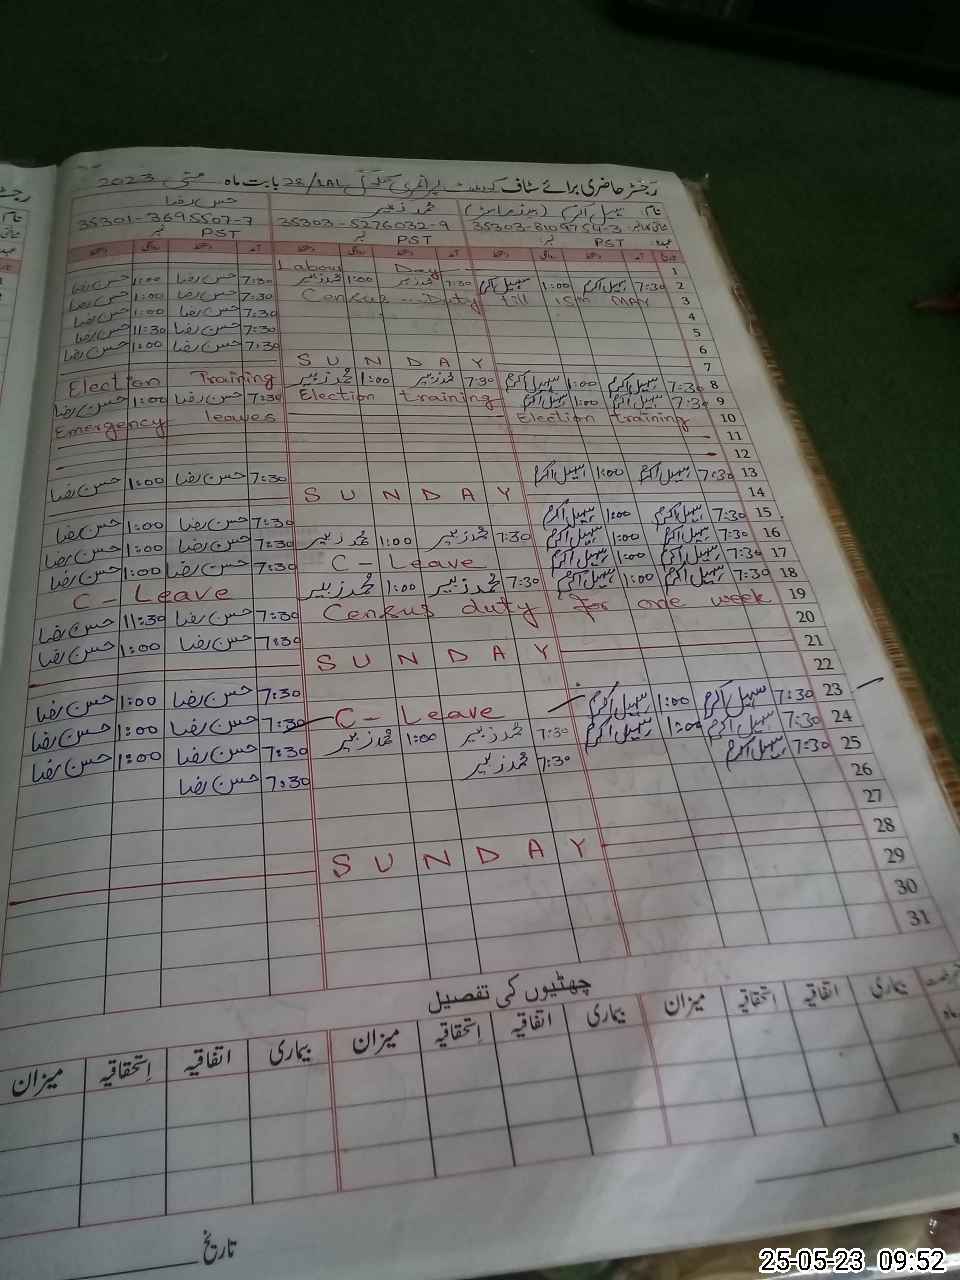 رجسٹر حاضری برائے سٹاف گورنمنٹ پرائمری سکول 28/2RL بابت ماہ مئی 2023
نام سہیل اکرم محمد زبیر حسن رضا
35303-8109754-3 35303-5276032-9 35301-3695507-7
عہدہ PST PST PST
1 Labour Day
2 7:30 سہیل اکرم 1:00 سہیل اکرم 7:30 محمد زبیر 1:00 محمد زبیر 7:30 حسن رضا 1:00 حسن رضا
3 Census Duty till 15th MAY 7:30 حسن رضا 1:00 حسن رضا
4 7:30 حسن رضا 1:00 حسن رضا
5 7:30 حسن رضا 11:30 حسن رضا
6 7:30 حسن رضا 1:00 حسن رضا
7 SUNDAY
8 7:30 سہیل اکرم 1:00 سہیل اکرم 7:30 محمد زبیر 1:00 محمد زبیر Election Training
9 7:30 سہیل اکرم 1:00 سہیل اکرم Election training 7:30 حسن رضا 1:00 حسن رضا
10 Election training Emergency leaves
11
12
13 7:30 سہیل اکرم 1:00 سہیل اکرم 7:30 حسن رضا 1:00 حسن رضا
14 SUNDAY
15 7:30 سہیل اکرم 1:00 سہیل اکرم 7:30 حسن رضا 1:00 حسن رضا
16 7:30 سہیل اکرم 1:00 سہیل اکرم 7:30 محمد زبیر 1:00 محمد زبیر 7:30 حسن رضا 1:00 حسن رضا
17 7:30 سہیل اکرم 1:00 سہیل اکرم C-Leave 7:30 حسن رضا 1:00 حسن رضا
18 7:30 سہیل اکرم 1:00 سہیل اکرم 7:30 محمد زبیر 1:00 محمد زبیر C-Leave
19 Census duty for one week 7:30 حسن رضا 11:30 حسن رضا
20 7:30 حسن رضا 1:00 حسن رضا
21 SUNDAY
22 7:30 حسن رضا 1:00 حسن رضا
23 7:30 سہیل اکرم 1:00 سہیل اکرم C-Leave 7:30 حسن رضا 1:00 حسن رضا
24 7:30 سہیل اکرم 1:00 سہیل اکرم 7:30 محمد زبیر 1:00 محمد زبیر 7:30 حسن رضا 1:00 حسن رضا
25 7:30 سہیل اکرم 7:30 محمد زبیر 7:30 حسن رضا
26
27
28 SUNDAY
29
30
31
چھٹیوں کی تفصیل
بیماری اتفاقیہ اِستحقاقیہ میزان بیماری اتفاقیہ اِستحقاقیہ میزان بیماری اتفاقیہ اِستحقاقیہ میزان
تاریخ
25-05-23 09:52